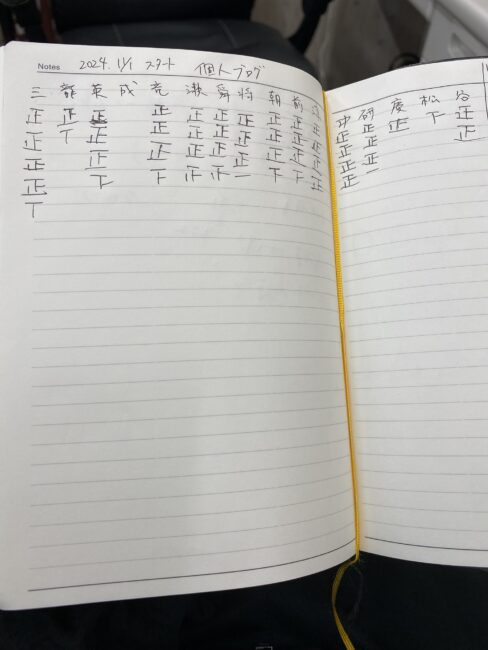 Notes 2024. 11/1 スタート 個人ブログ
三 龍 英 成 亮 瀬 舜 将 朝 前
正 正 正 正 正 正 正 正 正 正
正 T 正 正 正 正 正 正 正 正
正 正 正 正 正 正 正 正 正
正 下 下 正 正 一 下 下 正
T
功 研 慶 松 谷
正 正 正 下 正
正 正 正
正 正
正 一